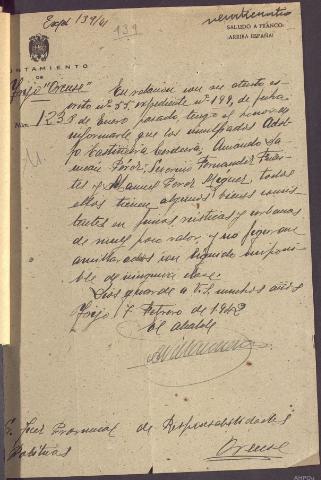 Exp 139/41
139
SALUDO A FRANCO:
¡ARRIBA ESPAÑA!
AYUNTAMIENTO
DE
Irijo "Orense"
Núm. 123
En relación con su atento es-
crito nº 55, expediente nº 199, de fecha
8 de Enero pasado, tengo el honor de
informarle que los inculpados Adol-
fo Castiñeira Cendera, Amando Sa-
Pérez, Geronio Fernandez
tes y Manuel Perez Miguez, todos
ellos tienen algunos bienes consis-
tentes en fincas rústicas y urbanas
de muy poco valor y no figuran
amillarados con liquido imponi-
ble de ninguna clase.
Dios guarde a V.S. muchos años
Irijo 7 Febrero de 1942
El alcalde
Sr. Juez Provincial de Responsabilidades
Politicas
Orense